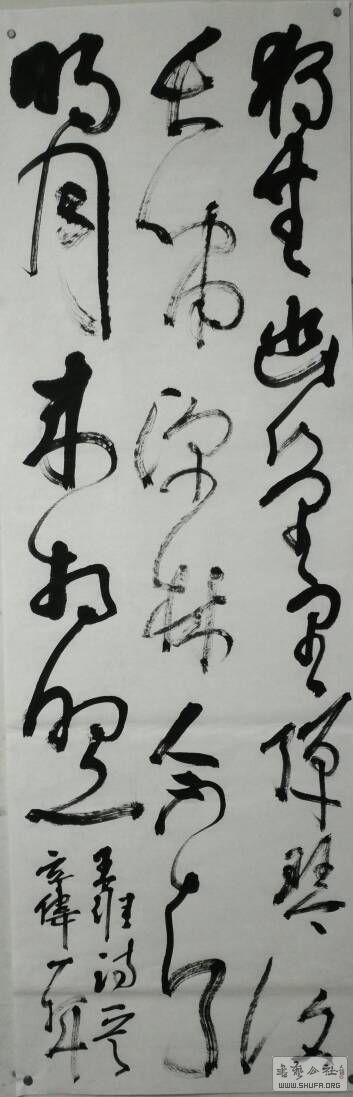 独坐幽篁里弹琴复
长啸深林人不知
明月来相照
王维诗一首
WWW.SHUFA.ORG